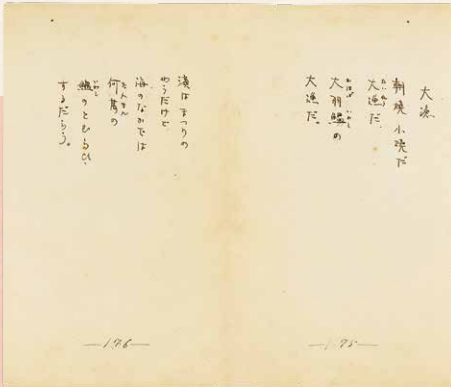 大漁
朝焼小焼だ
大漁だ
大羽鰮の
大漁だ。
濱はまつりの
やうだけど
海のなかでは
何萬の
鰮のとむらひ
するだらう。
—175—
—176—